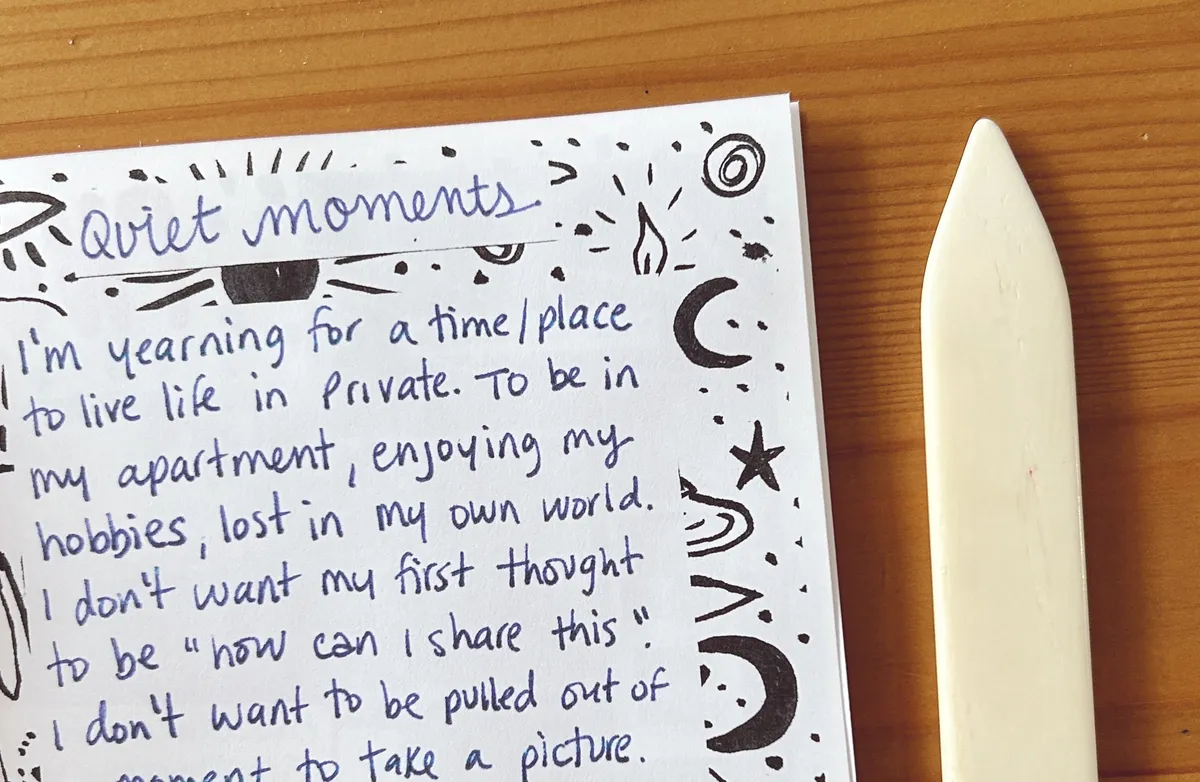 Quiet moments.
I'm yearning for a time/place
to live life in private. To be in
my apartment, enjoying my
hobbies, lost in my own world.
I don't want my first thought
to be "how can I share this".
I don't want to be pulled out of
moment to take a picture.